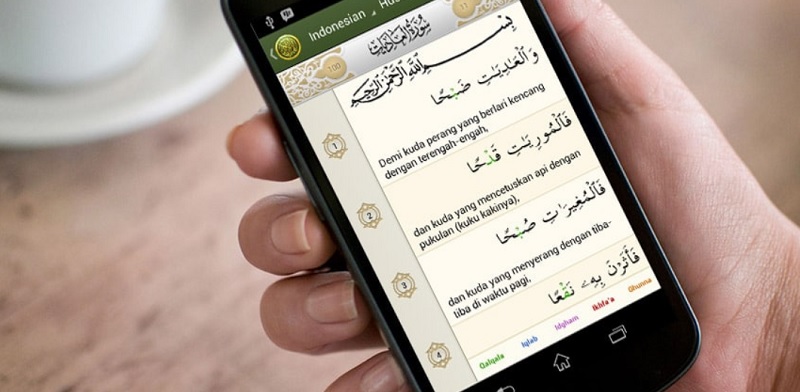 Indonesian
100
سورة العاديات
17
بسم الله الرحمن الرحيم
وَٱلْعَٰدِيَٰتِ ضَبْحًا
1
Demi kuda perang yang berlari kencang
dengan terengah-engah,
فَٱلْمُورِيَٰتِ قَدْحًا
2
dan kuda yang mencetuskan api dengan
pukulan (kuku kakinya),
فَٱلْمُغِيرَٰتِ صُبْحًا
3
dan kuda yang menyerang dengan tiba-
tiba di waktu pagi,
فَأَثَرْنَ بِهِۦ نَقْعًا
4
Qalqala Iqlab Idgham Ikhfa'a Ghunna